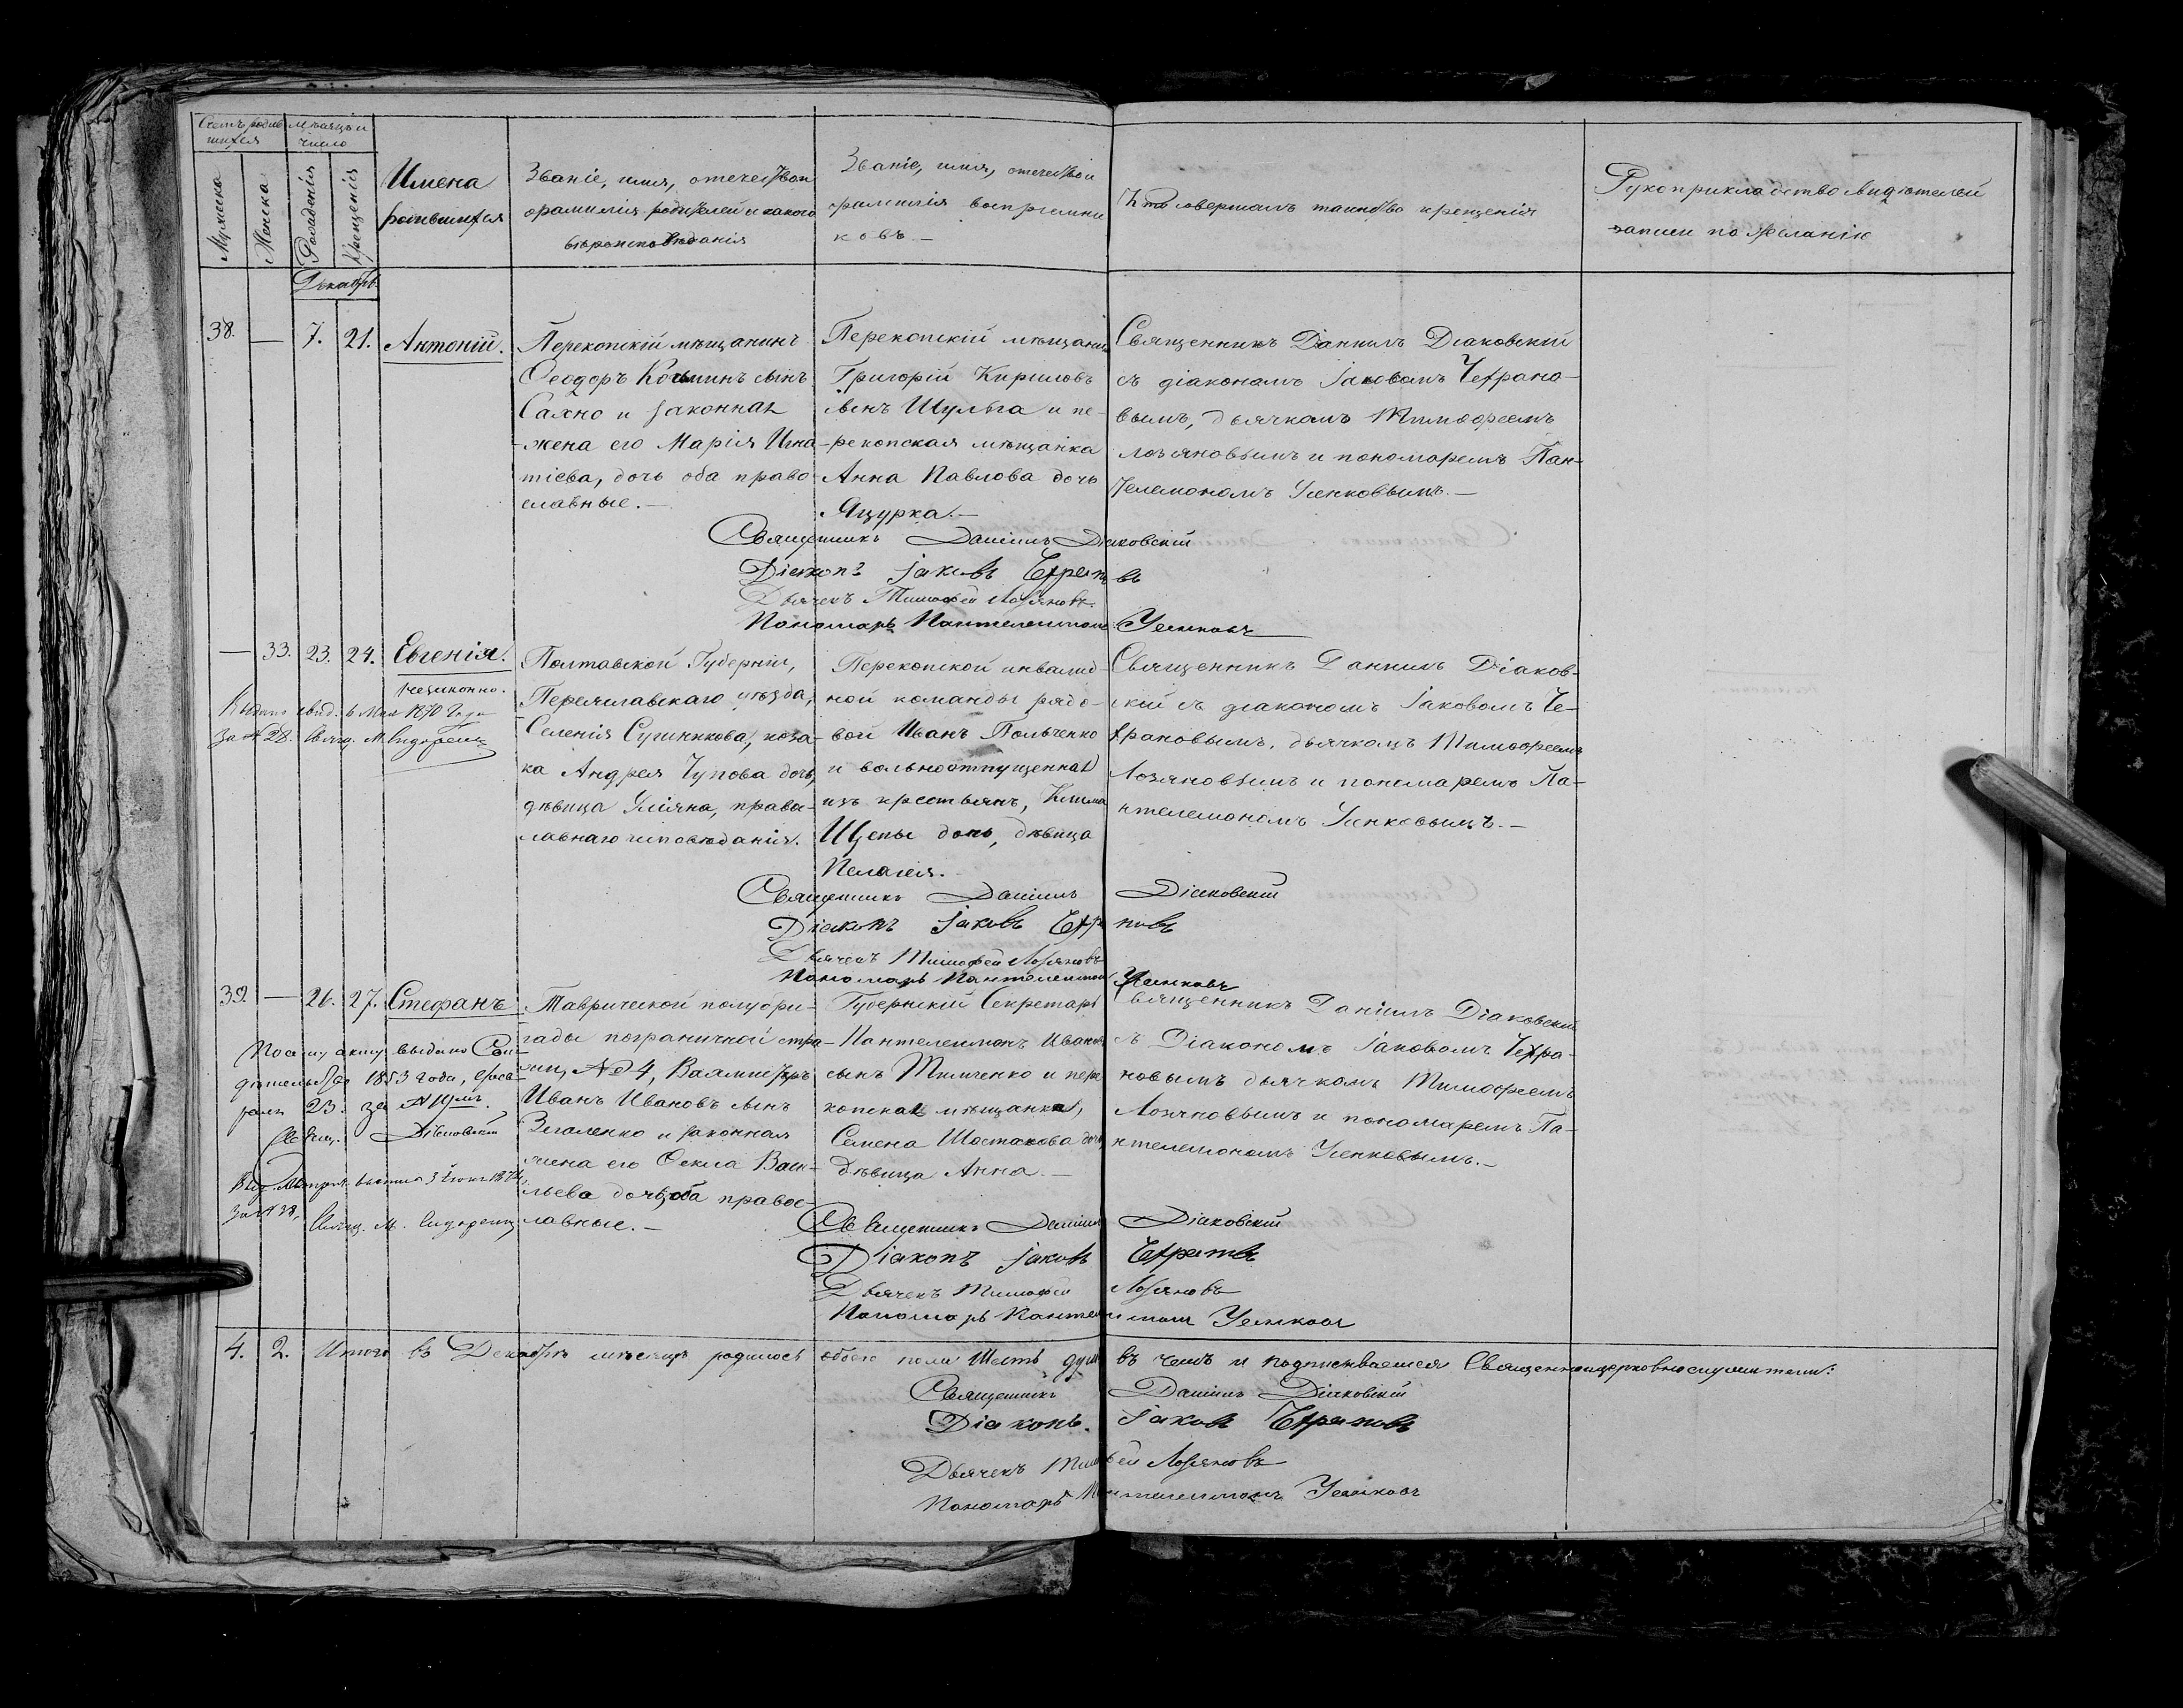 Счетъ родив
шихся
Мѣсяцъ и
число
Мужеска
Женска
Рожденія
Крещенія
Имена
родившихся
Званіе, имя, отечество и
фамилія родителей и какого
вѣроисповѣданія
Званіе, имя, отечество и
фамилія воспріемни
ковъ.—
Кто совершалъ таинство крещенія
Рукоприкладство свидѣтелей
записи по желанію
Декабрь
38. — 7. 21. Антоній.
Перекопскій мѣщанинъ
Ѳеодоръ Козминъ сынъ
Саяно и законная
жена его Марія Игна-
тіева, дочь оба право
славные.—
Перекопскій мѣщанинъ
Григорій Кириловъ
сынъ Шульга и пе-
рекопская мѣщанка
Анна Павлова дочь
Яцурка.—
Священникъ Даніилъ Діаковскій
съ діакономъ Іаковомъ
вымъ, дьячкомъ Тимоѳеемъ
Лозяновымъ и пономаремъ Пан-
телемономъ Усенковымъ.—
Священникъ Даніилъ Діаковскій
Діаконъ Іаковъ
Дьячекъ Тимофей Лозяновъ
Пономарь Пантелеимонъ Усенковъ
— 33. 23. 24. Евгенія.
незаконно.
Выдано свид. 6 Мая 1870 года
за № 28. Свящ. М.
Полтавской Губерніи,
Переяславскаго уѣзда,
Селенія Сушникова, коза-
ка Андрея Чупова дочь,
дѣвица Уліяна, право-
славнаго исповѣданія.
Перекопской инвалид
ной команды рядо-
вой Иванъ Польченко
и вольноотпущенная
изъ крестьянъ, Клима
Щепы дочь, дѣвица
Пелагея.
Священникъ Даніилъ Діаков-
скій съ діакономъ Іаковомъ Че-
храновымъ, дьячкомъ Тимоѳеемъ
Лозяновымъ и пономаремъ Па-
нтелемономъ Усенковымъ.—
Священникъ Даніилъ Діаковскій
Діаконъ Іаковъ
Дьячекъ Тимофей Лозяновъ
Пономарь Пантелеимонъ Усенковъ
39. — 26. 27. Стефанъ
По сему акту выдано Сви-
дѣтельство 1853 года, Фев-
раля 23. за №
Свящ. Діаковскій
1874
за № 38,
Свящ. М.
Таврической полубри-
гады пограничной стра-
жи, № 4, Вахмистръ
Иванъ Ивановъ сынъ
Зеваленко и законная
жена его Ѳекла Васи-
льева дочь, оба правос-
лавные.—
Губернскій Секретарь
Пантелеимонъ Ивановъ
сынъ Тимченко и пере
копская мѣщанка,
Семена Шостакова дочь
дѣвица Анна.—
Священникъ Даніилъ Діаковскій
съ Діакономъ Іаковомъ Чехра-
новымъ дьячкомъ Тимоѳеемъ
Лозяновымъ и пономаремъ Па-
нтелемономъ Усенковымъ.—
Священникъ Даніилъ Діаковскій
Діаконъ Іаковъ
Дьячекъ Тимофей Лозяновъ
Пономарь Пантелеимонъ Усенковъ
4. 2. Итого въ Декабрѣ мѣсяцѣ родилось обоего пола Шесть душъ въ чемъ и подписываемся Священноицерковнослужители:
Священникъ Даніилъ Діаковскій
Діаконъ. Іаковъ Чехрановъ
Дьячекъ Тимофей Лозяновъ
Пономарь Пантелеимонъ Усенковъ